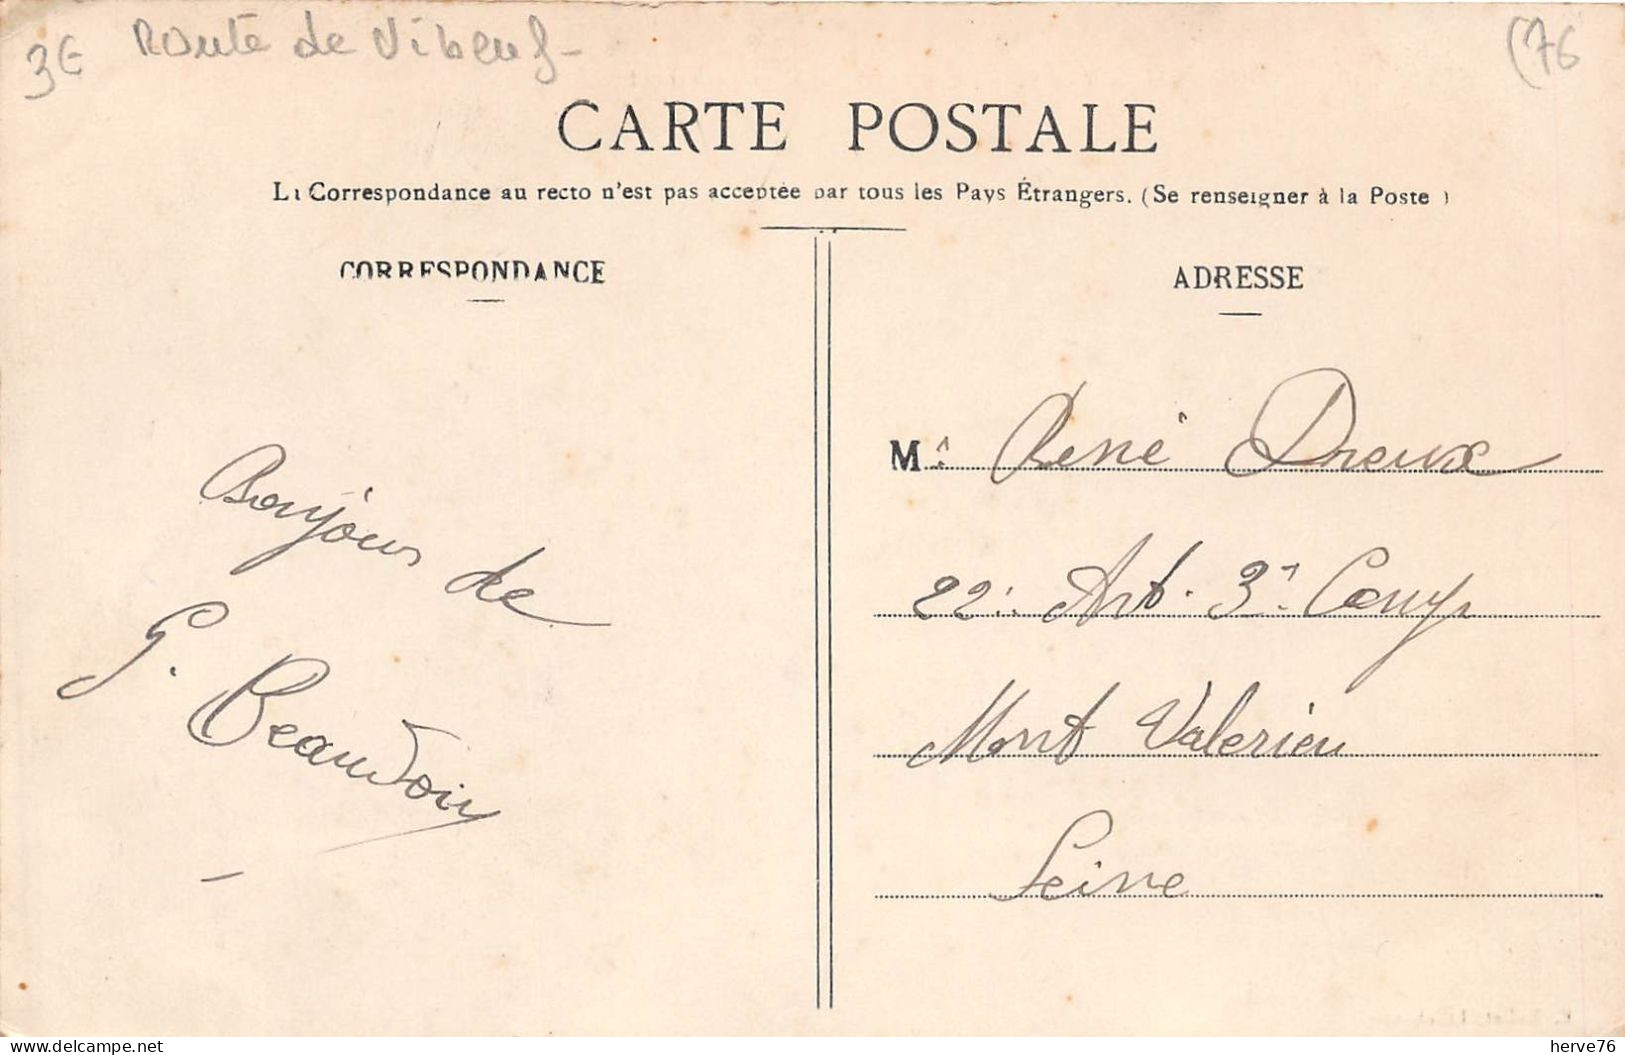 3€ Route de Vibeuf - (76
CARTE POSTALE
La Correspondance au recto n'est pas acceptée par tous les Pays Étrangers. (Se renseigner à la Poste)
CORRESPONDANCE
ADRESSE
Bonjour de
G. Beaudoin
Mr René Dreux
22e Art. 3e Comp
Mont Valerien
Seine
delcampe.net
herve76